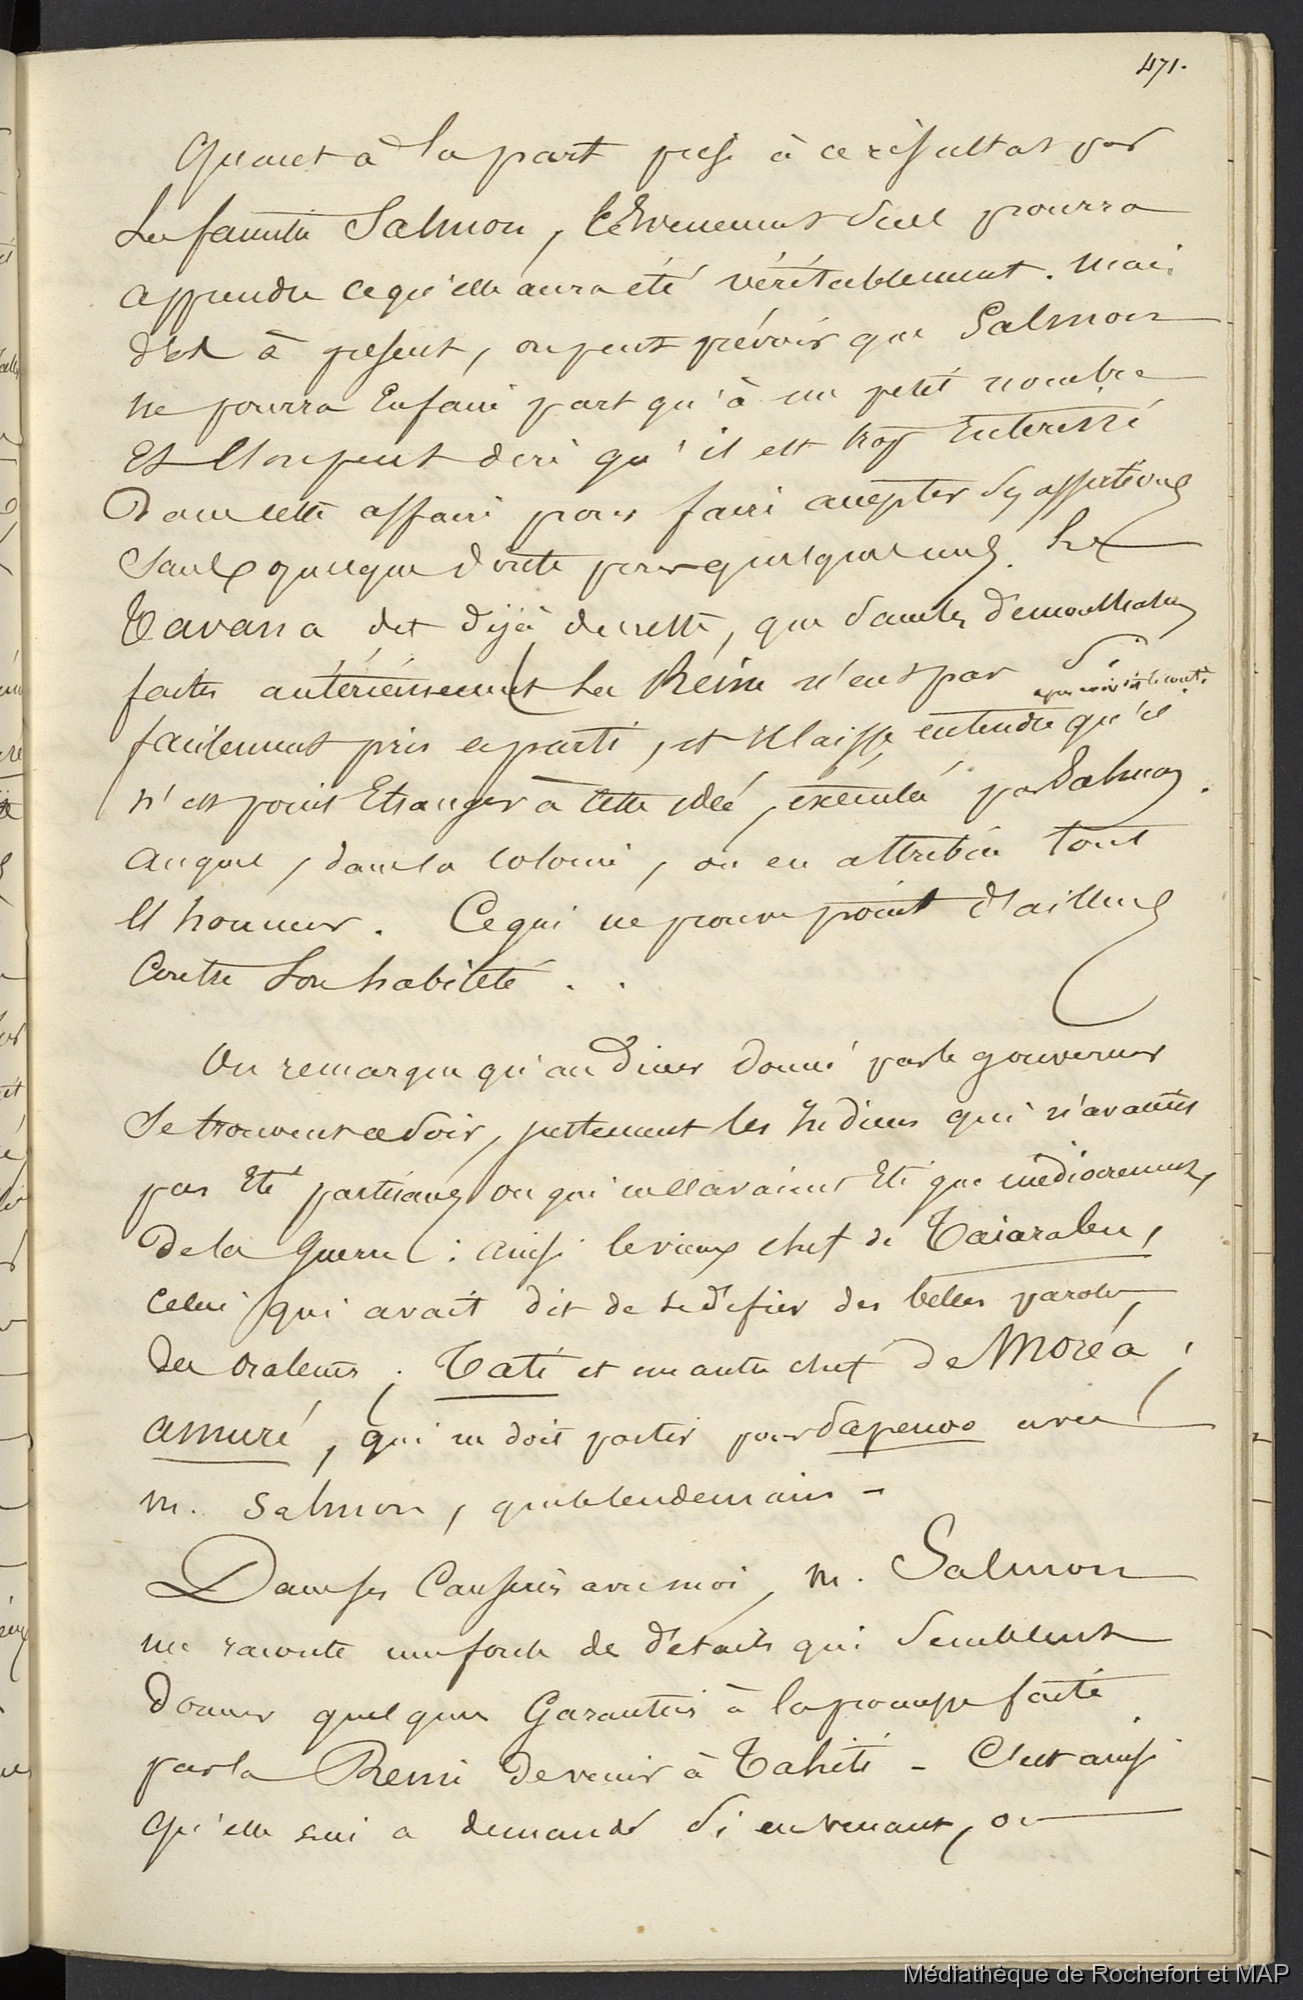 471.
Quant à la part prise à ce résultat par
la famille Salmon, l'Evenement seul pourra
apprendre ce qu'elle aura été véritablement. Mais
dès à présent, on peut prévoir que Salmon
ne pourra En faire part qu'à un petit nombre
Et l'on peut dire qu'il est trop Interessé
Dans cette affaire pour faire accepter ses assertions
sans quelque doute pour quelques uns. Le
Tavana dit déjà que sans les demonstrations
faites antérieurement La Reine n'eut pas si
facilement pris ce parti, et laisse entendre qu'il
n'est point Etranger à cette idée, exécutée par Salmon.
auquel, dans la colonie, on en attribue tout
l'honneur. Ce qui ne prouve point d'ailleurs
Contre Son habileté . .
On remarque qu'au Diner donné par le gouverneur
Se trouvent ce soir, justement les Indiens qui n'avaient
pas Eté partisans ou qui ne l'avaient Eté que médiocrement,
De la Guerre : ainsi le vieux chef de Taiarabu,
Celui qui avait dit de se défier des belles paroles
des orateurs ; Tati et un autre chef de Moréa ;
amuré, qui ne doit partir pour avec
M. Salmon, que le lendemain -
Dans ses Causeries avec moi, M. Salmon
me raconte une foule de détails qui semblent
Donner quelques Garanties à la promesse faite
par la Reine de venir à Tahiti - C'est ainsi
qu'elle lui a demandé si en venant, on